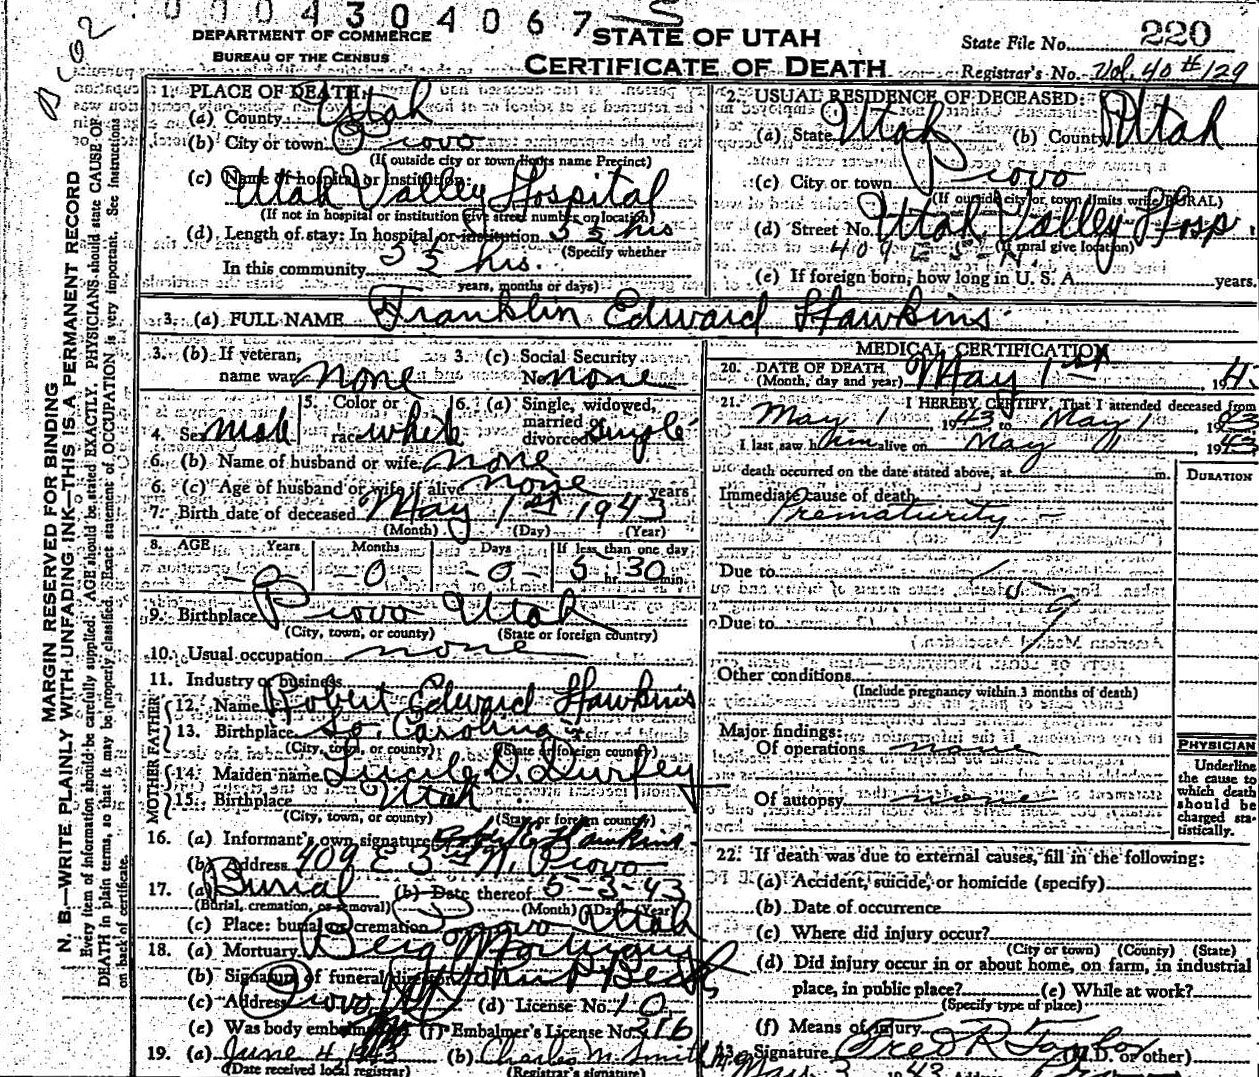 0 0 0 4 3 0 4 0 6 7
DEPARTMENT OF COMMERCE
BUREAU OF THE CENSUS
STATE OF UTAH
CERTIFICATE OF DEATH
State File No. 220
Registrar's No. Vol. 40 # 129
MARGIN RESERVED FOR BINDING
N. B.—WRITE PLAINLY WITH UNFADING INK—THIS IS A PERMANENT RECORD
Every item of information should be carefully supplied. AGE should be stated EXACTLY. PHYSICIANS should state CAUSE OF
DEATH in plain terms, so that it may be properly classified. Exact statement of OCCUPATION is very important. See instructions
on back of certificate.
1. PLACE OF DEATH:
(a) County Utah
(b) City or town Provo
(If outside city or town limits name Precinct)
(c) Name of hospital or institution:
Utah Valley Hospital
(If not in hospital or institution give street number or location)
(d) Length of stay: In hospital or institution 5 5 hrs
(Specify whether
In this community 5 5 hrs.
years, months or days)
2. USUAL RESIDENCE OF DECEASED:
(a) State Utah (b) County Utah
(c) City or town Provo
(If outside city or town limits write RURAL)
(d) Street No. Utah Valley Hosp
409 E 3 N.
(If rural give location)
(e) If foreign born, how long in U. S. A. years.
3. (a) FULL NAME Franklin Edward Hawkins
3. (b) If veteran, name war none
3. (c) Social Security No. none
4. Sex male
5. Color or race white
6. (a) Single, widowed, married divorced single
6. (b) Name of husband or wife none
6. (c) Age of husband or wife if alive none years
7. Birth date of deceased May 1st 1943
(Month) (Day) (Year)
8. AGE Years Months Days If less than one day
- 0 - 0 - - 0 - 5 hr. 30 min.
9. Birthplace Provo Utah
(City, town, or county) (State or foreign country)
10. Usual occupation none
11. Industry or business
MOTHER FATHER
12. Name Robert Edward Hawkins
13. Birthplace So. Carolina
(City, town, or county) (State or foreign country)
14. Maiden name Lucile D. Durfey
15. Birthplace Utah
(City, town, or county) (State or foreign country)
16. (a) Informant's own signature Hawkins
(b) Address 409 E 3rd N. Provo
17. (a) Burial (b) Date thereof 5-3-43
(Burial, cremation, or removal) (Month) (Day) (Year)
(c) Place: burial or cremation Provo Utah
18. (a) Mortuary Berg Mortuary
(b) Signature of funeral director John P Berg
(c) Address Provo (d) License No. 10
(e) Was body embalmed (f) Embalmer's License No. 316
19. (a) June 4, 1943 (b) Charles M. Smith
(Date received local registrar) (Registrar's signature)
MEDICAL CERTIFICATION
20. DATE OF DEATH
(Month, day and year) May 1st, 194
21. I HEREBY CERTIFY, That I attended deceased from
May 1 1943 to May 1, 1943
I last saw him alive on May 1943
death occurred on the date stated above, at m.
DURATION
Immediate cause of death
Prematurity -
Due to
Due to
Other conditions
(Include pregnancy within 3 months of death)
Major findings:
Of operations none
Of autopsy none
PHYSICIAN
Underline
the cause to
which death
should be
charged sta-
tistically.
22. If death was due to external causes, fill in the following:
(a) Accident, suicide, or homicide (specify)
(b) Date of occurrence
(c) Where did injury occur?
(City or town) (County) (State)
(d) Did injury occur in or about home, on farm, in industrial
place, in public place? (e) While at work?
(Specify type of place)
(f) Means of injury
23. Signature Fred R Taylor (M.D. or other)
May 3 1943